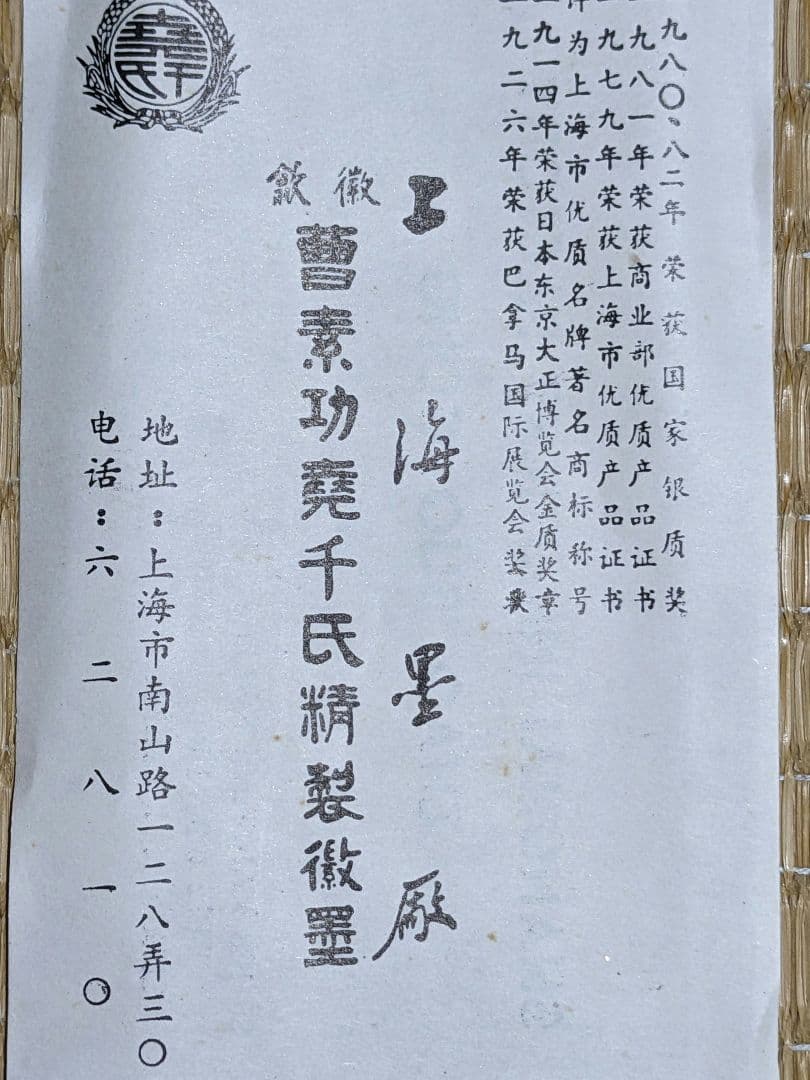 九八〇、八二年荣获国家银质奖
一九八一年荣获商业部优质产品证书
一九七九年荣获上海市优质产品证书
为上海市优质名牌著名商标称号
一九一四年荣获日本东京大正博览会金质奖章
一九二六年荣获巴拿马国际展览会奖状
上海墨厰
徽歙
曹素功堯千氏精製徽墨
地址：上海市南山路一二八弄三〇
电话：六二八一〇
堯千氏